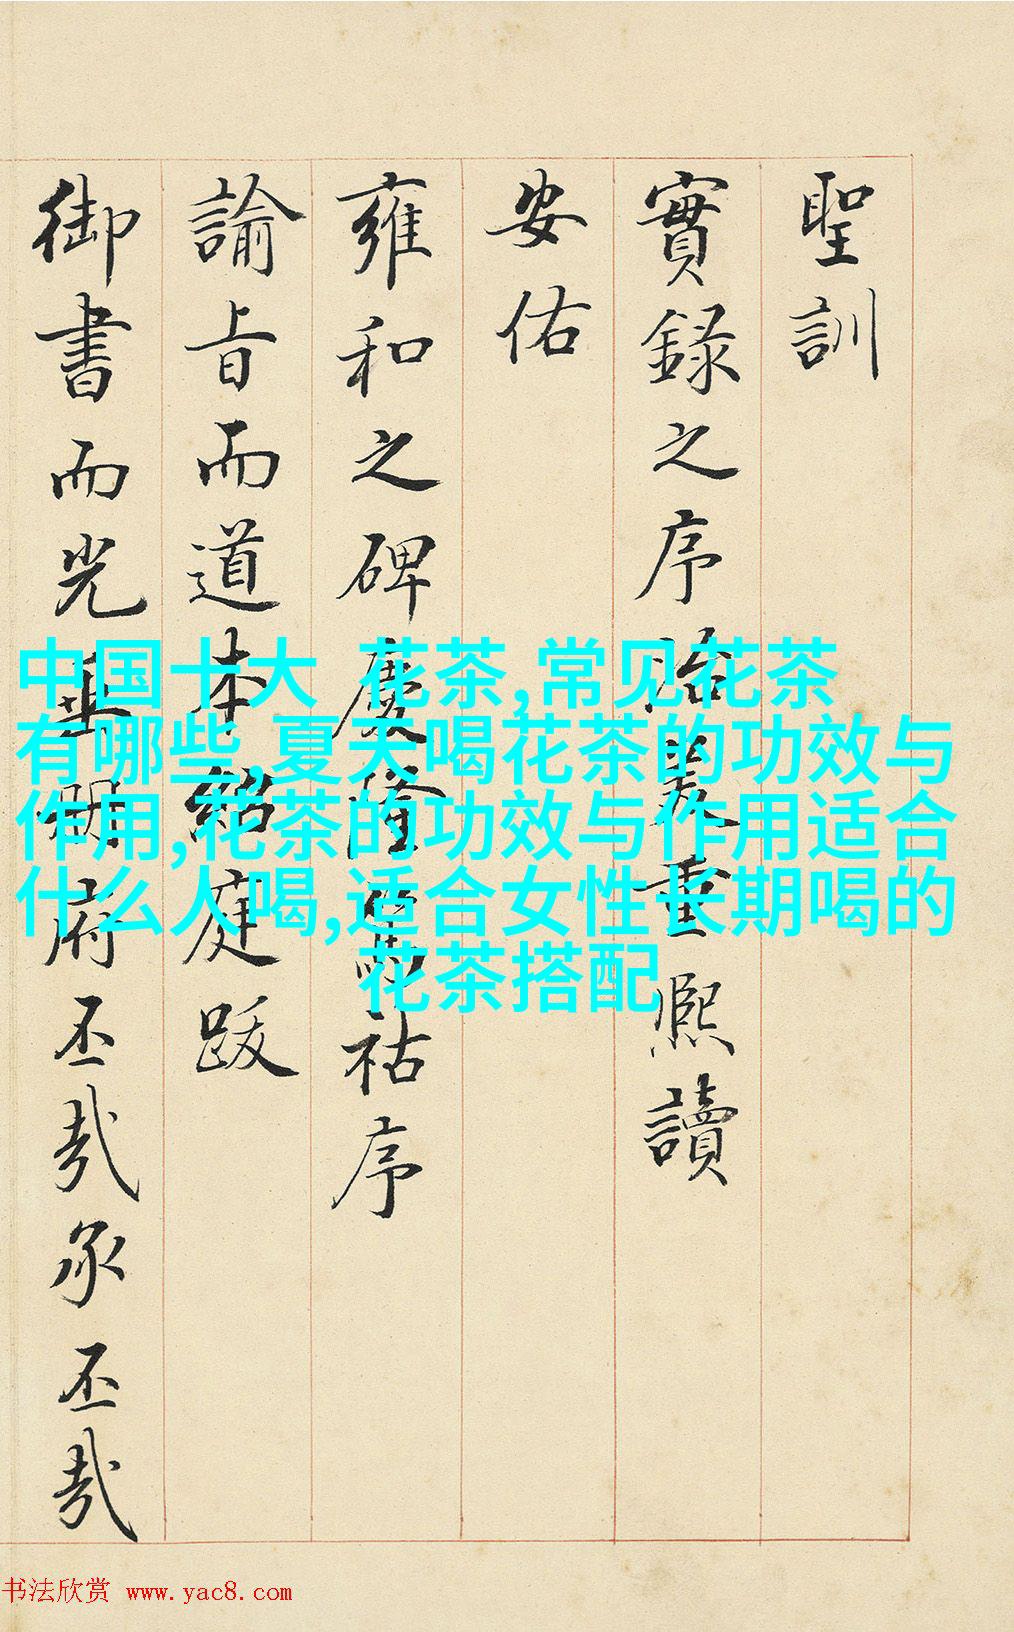 聖訓
實録之序重熙讀
安佑
雍和之碑慶隆祜序
諭旨而道本紹庭跋
御書而光華明府丕哉承丕哉
中国十大 花茶,常见花茶
有哪些,夏天喝花茶的功效与
作用,花茶的功效与作用适合
什么人喝,适合女性长期喝的
花茶搭配
书法欣赏 www.yac8.com